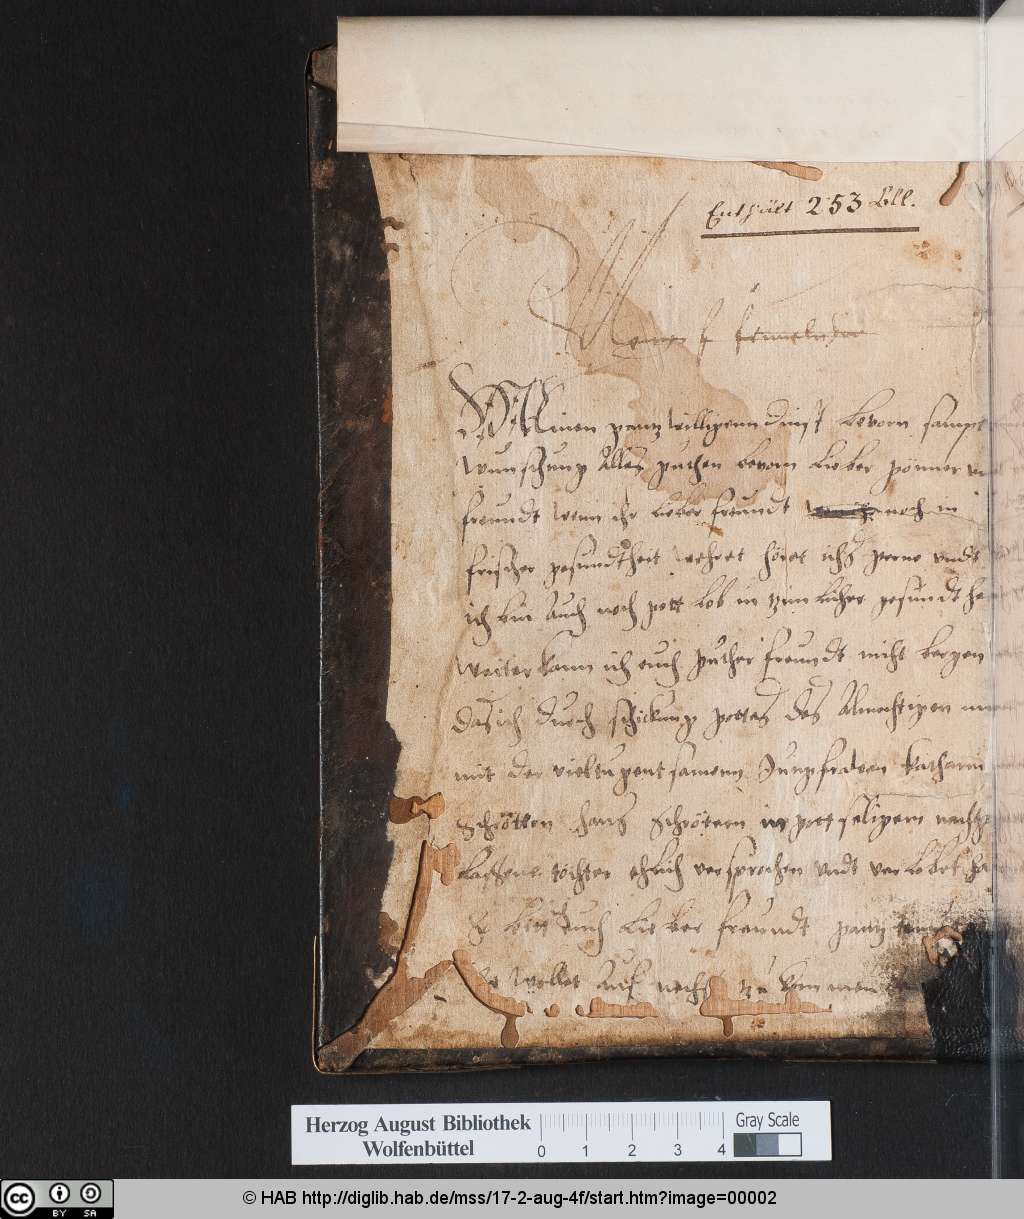 Enthält 253 Bll.
Meinen gantz willigenn dinst bevorn sampt
Wünschung Alles guthen bevorn Lieber gönner
freundt wenn ihr Lieber freundt noch in
frischer gesundtheit wehret höret ichs gerne undt
ich bin Auch noch gott lob in zimlicher gesundthe
Weiter kann ich euch guther freundt nicht bergen
das ich durch schickung gottes des Almechtigen
mit der vieltugentsamenn Jungfrawen Katharin
Schrötten hans Schrötern in gott seligem nachge
lassene tochter ehlich versprochen undt verlobet ha
bitt Euch Lieber freundt gantz
wollet Auf nechst zu kommen
Herzog August Bibliothek
Wolfenbüttel
0 1 2 3 4
Gray Scale
cc BY SA
© HAB http://diglib.hab.de/mss/17-2-aug-4f/start.htm?image=00002